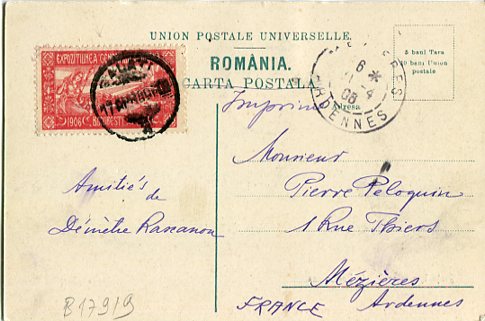 UNION POSTALE UNIVERSELLE.
ROMÂNIA.
CARTA POSTALA
Adresa
5 bani Tara
10 bani Uniun
postale
EXPOZITIUNEA GEN
1906 BUCURESTI
GALATI
MEZIERES
6 *
4
08
ARDENNES
Imprimé
Monsieur
Pierre Peloquin
1 Rue Thiers
Mézières
FRANCE Ardennes
Amitiés
de
Démètre
B1799